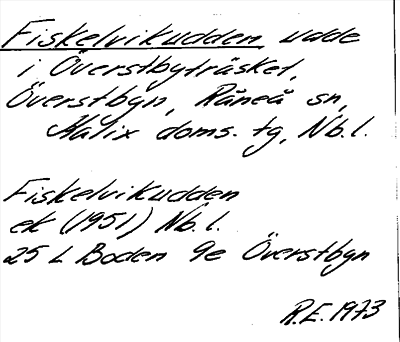 Fiskelvikudden, udde
i Överstbyträsket,
Överstbyn, Råneå sn,
Kalix doms. tg, Nb.l.
Fiskelvikudden
ek (1951) Nb.l.
25 L Boden 9e Överstbyn
R.E. 1973